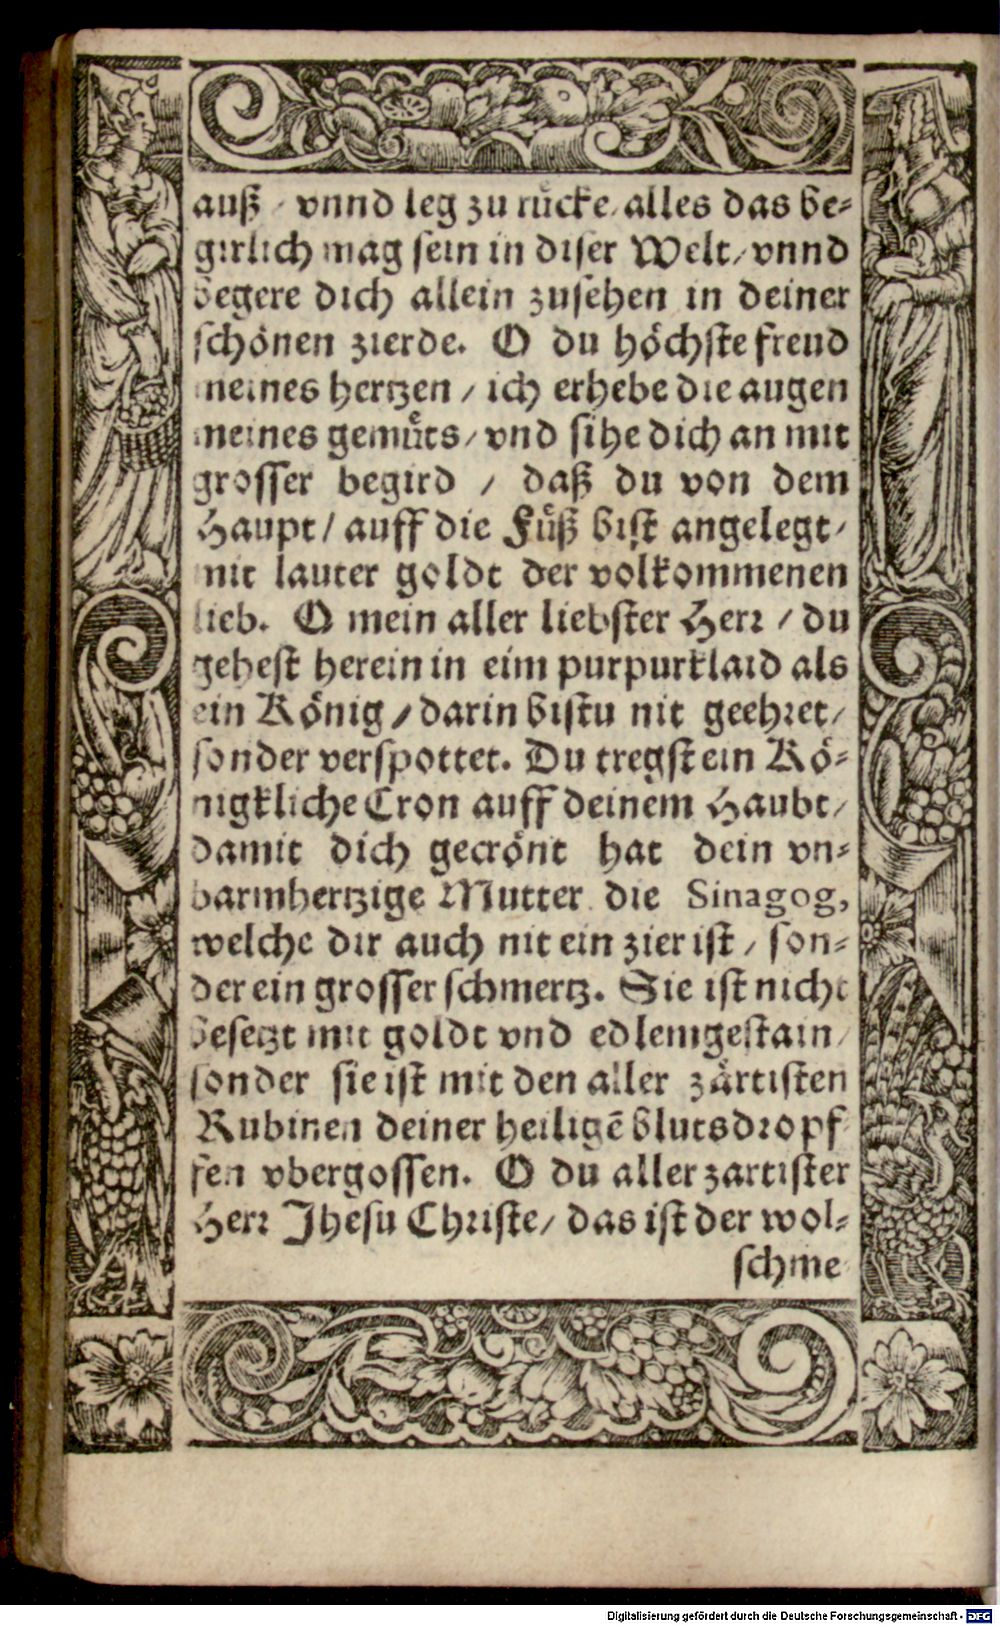 auß / vnnd leg zu rücke / alles das be-
girlich mag sein in diser Welt / vnnd
begere dich allein zusehen in deiner
schönen zierde. O du höchste freud
meines hertzen / ich erhebe die augen
meines gemüts / vnd sihe dich an mit
grosser begird / daß du von dem
Haupt / auff die Füß bist angelegt /
mit lauter goldt der volkommenen
lieb. O mein aller liebster Herr / du
gehest herein in eim purpurklaid als
ein König / darin bistu nit geehret /
sonder verspottet. Du tregst ein Kö-
nigkliche Cron auff deinem Haubt /
damit dich gecrönt hat dein vn-
barmhertzige Mutter die Sinagog,
welche dir auch nit ein zier ist / son-
der ein grosser schmertz. Sie ist nicht
besetzt mit goldt vnd edlemgestain /
sonder sie ist mit den aller zärtisten
Rubinen deiner heiligē blutsdropf-
fen vbergossen. O du aller zartister
Herr Jhesu Christe / das ist der wol-
schme
Digitalisierung gefördert durch die Deutsche Forschungsgemeinschaft - DFG